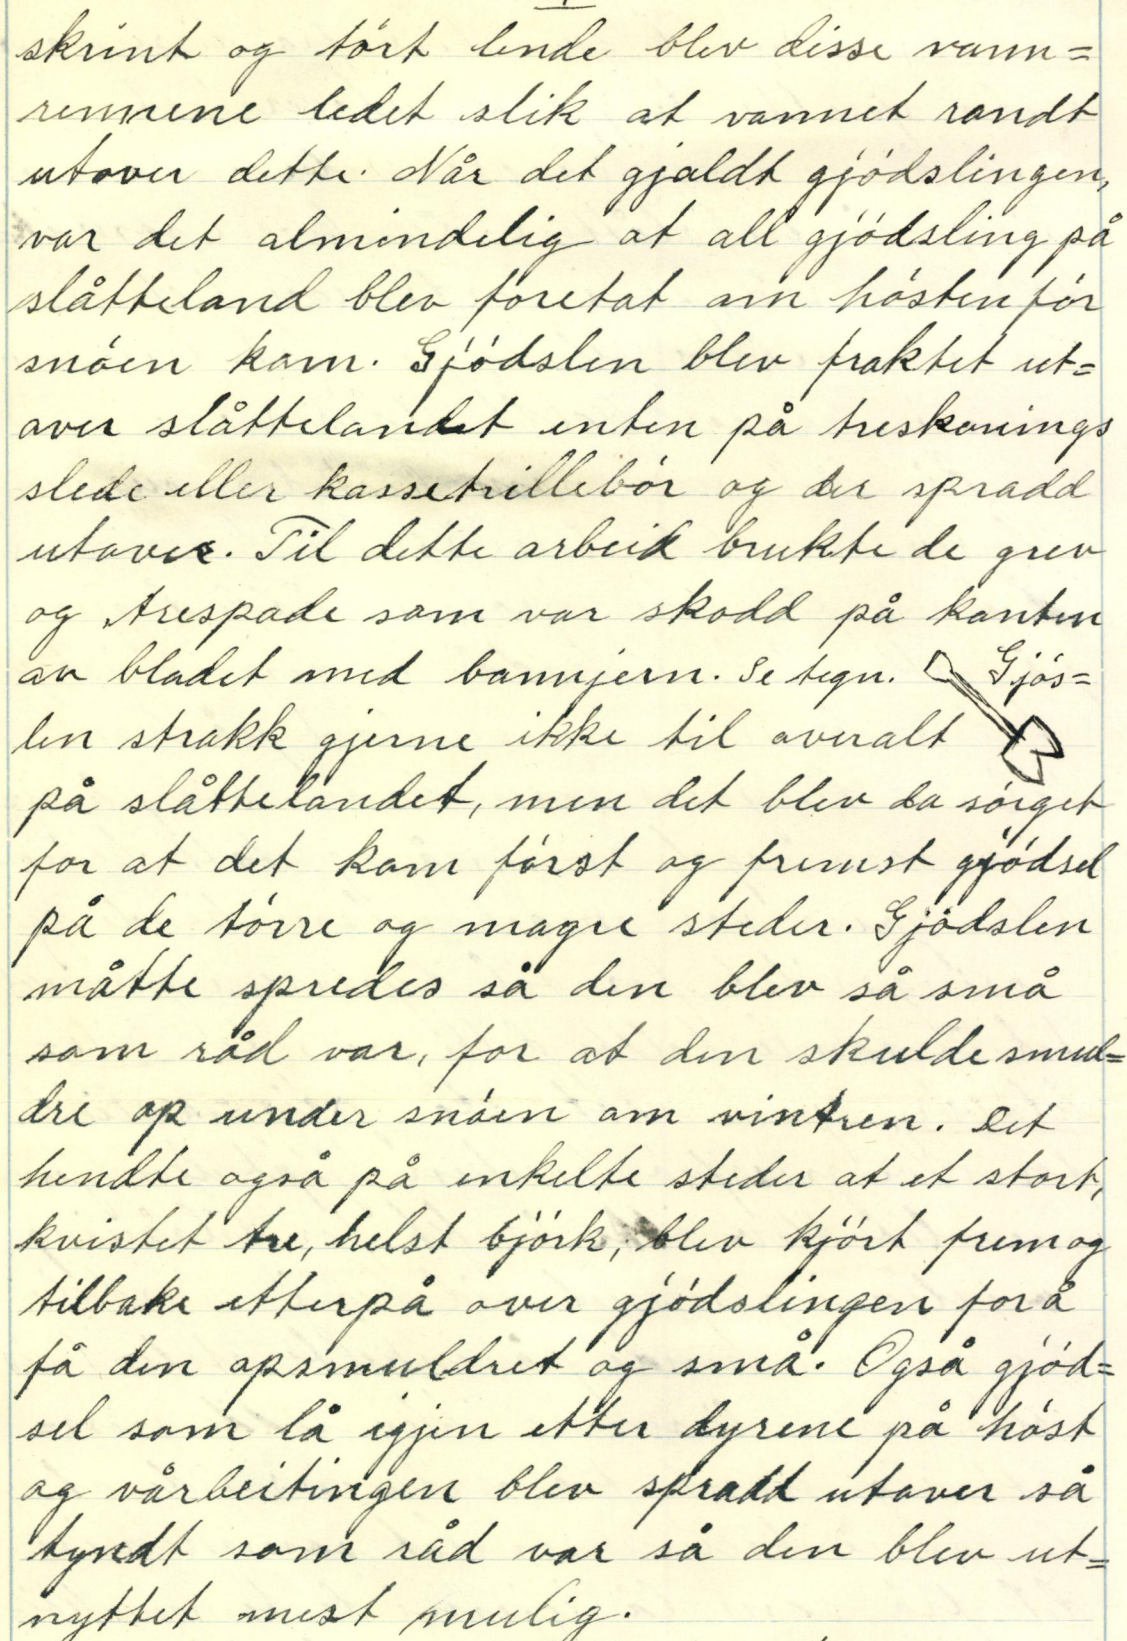 skrint og tørt lende blev disse vann=
rennene ledet slik at vannet randt
utover dette. Når det gjaldt gjødslingen,
var det almindelig at all gjødsling på
slåtteland blev foretat om høsten før
snøen kom. Gjødslen blev fraktet ut=
over slåttelandet enten på treskonings
slede eller kassetrillebør og der spradd
utover. Til dette arbeid brukte de grev
og trespade som var skodd på kanten
av bladet med bannjern. Se tegn. Gjøs=
len strakk gjerne ikke til overalt
på slåttelandet, men det blev da sørget
for at det kom først og fremst gjødsel
på de tørre og magre steder. Gjødslen
måtte spredes så den blev så små
som råd var, for at den skulde smul=
dre op under snøen om vintren. Det
hendte også på enkelte steder at et stort,
kvistet tre, helst bjørk, blev kjørt frem og
tilbake etterpå over gjødslingen for å
få den opsmuldret og små. Også gjød=
sel som lå igjen etter dyrene på høst
og vårbeitingen blev spradd utover så
tyndt som råd var så den blev ut=
nyttet mest mulig.